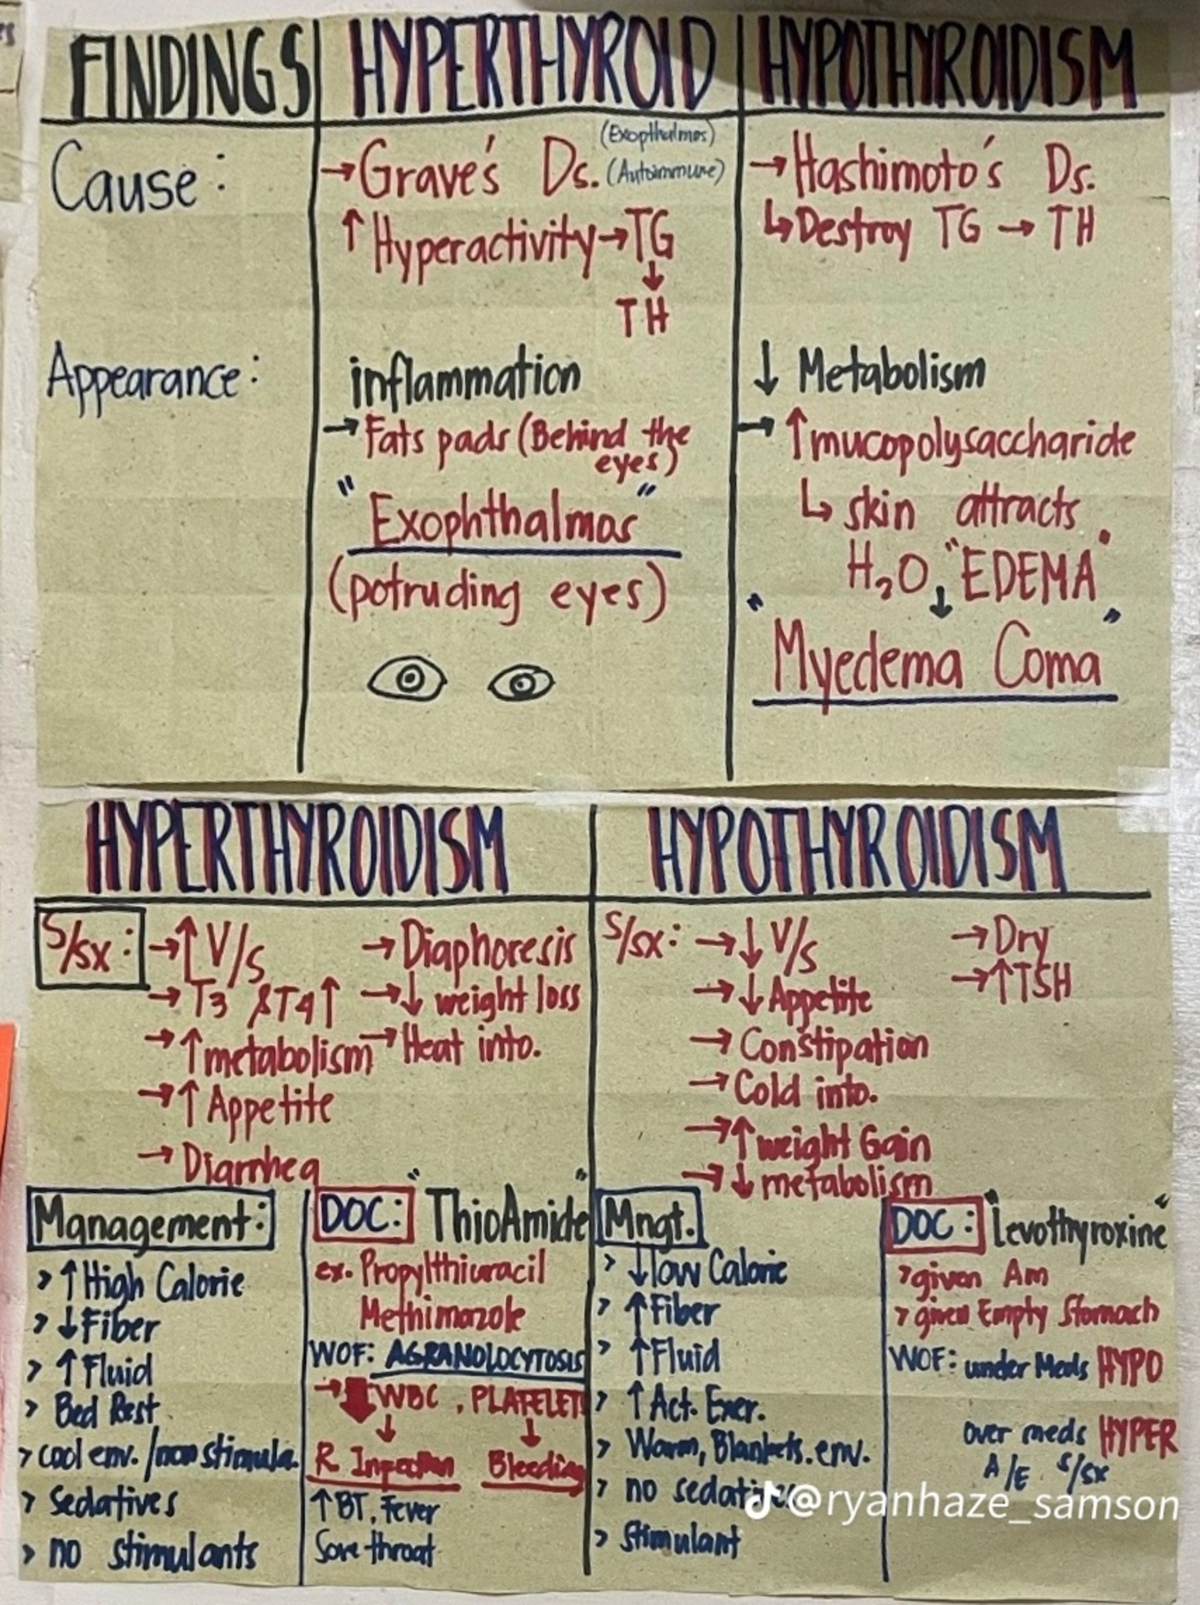 FINDINGS HYPERTHYROID HYPOTHYROIDISM
Cause:
(Exopthalmos)
→ Grave's Ds. (Autoimmune)
↑ Hyperactivity → TG
↓
TH
→ Hashimoto's Ds.
↳ Destroy TG → TH
Appearance:
inflammation
→ Fats pads (Behind the
eyes)
"Exophthalmos"
(potruding eyes)
↓ Metabolism
→ ↑ mucopolysaccharide
↳ skin attracts
H₂O "EDEMA"
↓
"Myedema Coma"
HYPERTHYROIDISM
S/sx: → ↑ V/s
→ T3 & T4 ↑
→ ↑ metabolism
→ ↑ Appetite
→ Diarrhea
→ Diaphoresis
→ ↓ weight loss
→ Heat into.
Management:
> ↑ High Calorie
> ↓ Fiber
> ↑ Fluid
> Bed Rest
> cool env. / non stimula.
> Sedatives
> no stimulants
DOC: "ThioAmide"
ex. Propylthiuracil
Methimazole
WOF: AGRANOLOCYTOSIS
→ ↓ WBC, PLATELET
↓ ↓
R. Infection Bleeding
↑ BT, Fever
Sore throat
HYPOTHYROIDISM
S/sx: → ↓ V/s
→ ↓ Appetite
→ Constipation
→ Cold into.
→ ↑ weight Gain
→ ↓ metabolism
→ Dry
→ ↑ TSH
Mngt.
> ↓ low Calorie
> ↑ Fiber
> ↑ Fluid
> ↑ Act. Exer.
> Warm, Blankets. env.
> no sedatives
> stimulant
DOC: "Levothyroxine"
> given Am
> given Empty Stomach
WOF: under Meds HYPO
over meds HYPER
A/E S/sx
@ryanhaze_samson